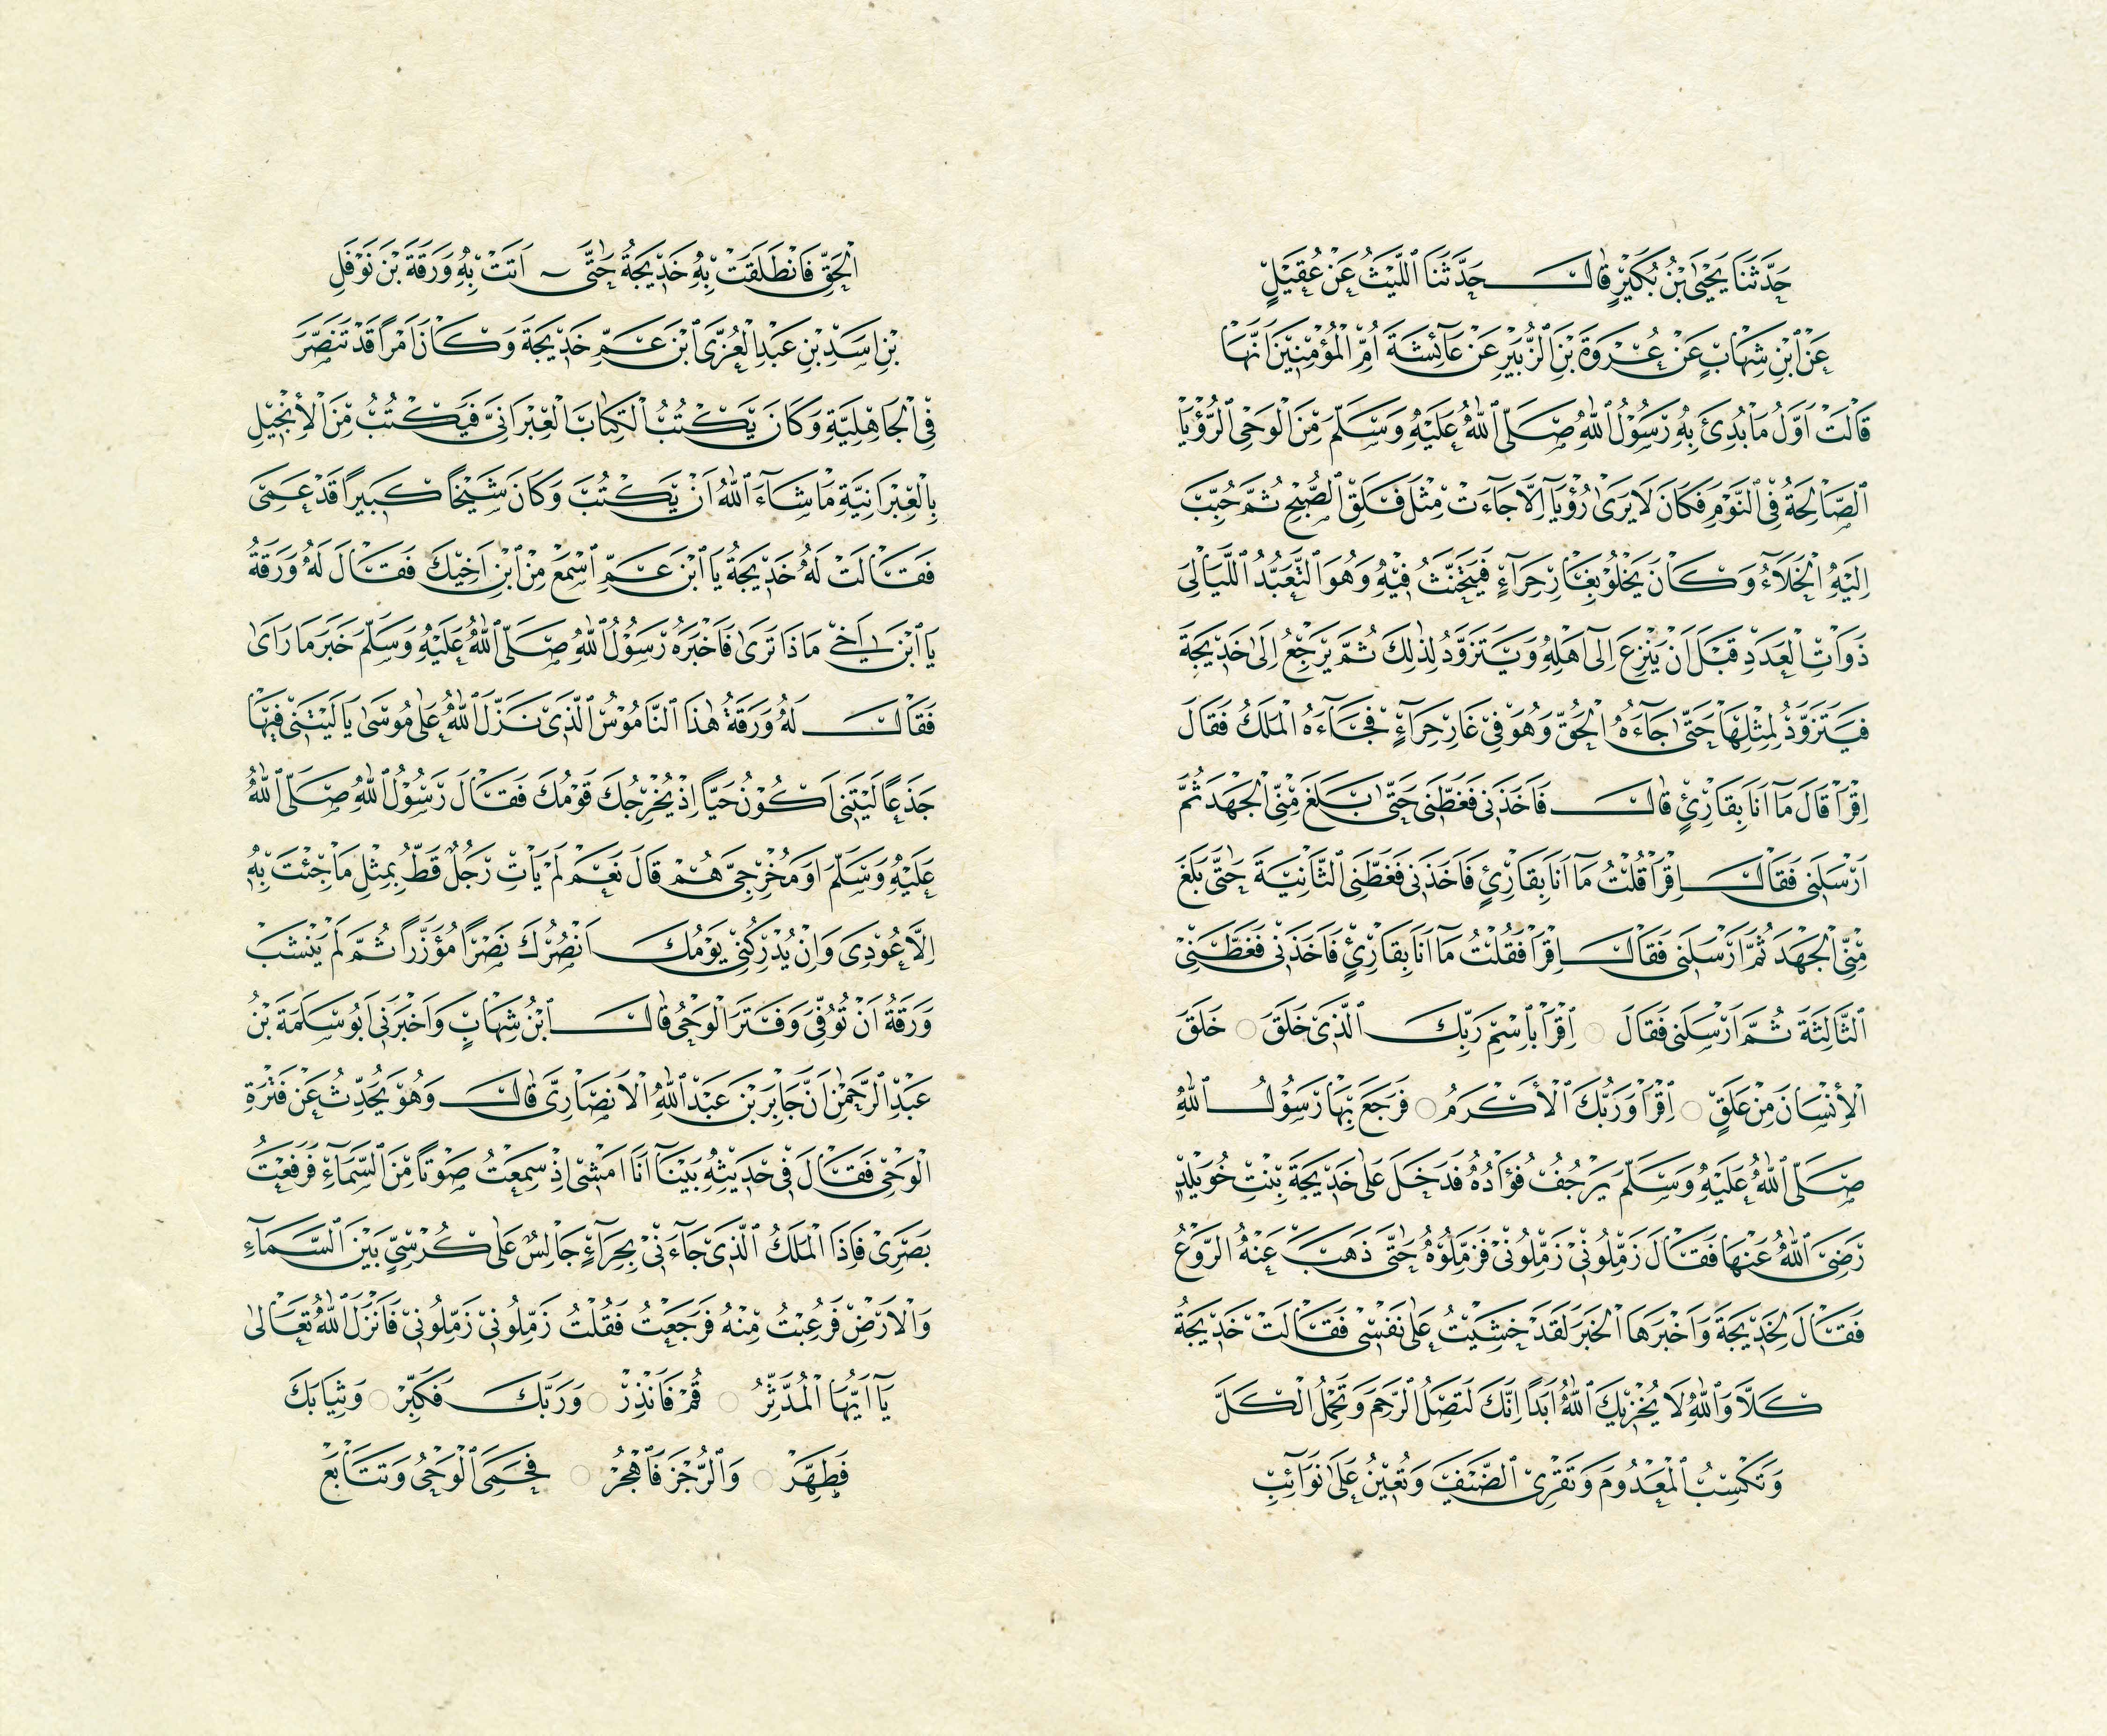 حَدَّثَنَا يَحْيَى بْنُ بُكَيْرٍ قَالَ حَدَّثَنَا اللَّيْثُ عَنْ عُقَيْلٍ
عَنِ ابْنِ شِهَابٍ عَنْ عُرْوَةَ بْنِ الزُّبَيْرِ عَنْ عَآئِشَةَ اُمِّ الْمُؤْمِنِيْنَ اَنَّهَا
قَالَتْ اَوَّلُ مَا بُدِئَ بِهِ رَسُوْلُ اللهِ صَلَّى اللهُ عَلَيْهِ وَسَلَّمَ مِنَ الْوَحْيِ الرُّؤْيَا
الصَّالِحَةُ فِي النَّوْمِ فَكَانَ لَا يَرٰى رُؤْيَآ اِلَّا جَآءَتْ مِثْلَ فَلَقِ الصُّبْحِ ثُمَّ حُبِّبَ
اِلَيْهِ الْخَلَآءُ وَكَانَ يَخْلُوْ بِغَارِ حِرَآءٍ فَيَتَحَنَّثُ فِيْهِ وَهُوَ التَّعَبُّدُ اللَّيَالِيَ
ذَوَاتِ الْعَدَدِ قَبْلَ اَنْ يَنْزِعَ اِلٰٓى اَهْلِهِ وَيَتَزَوَّدُ لِذٰلِكَ ثُمَّ يَرْجِعُ اِلٰى خَدِيْجَةَ
فَيَتَزَوَّدُ لِمِثْلِهَا حَتّٰى جَآءَهُ الْحَقُّ وَهُوَ فِيْ غَارِ حِرَآءٍ فَجَآءَهُ الْمَلَكُ فَقَالَ
اِقْرَاْ قَالَ مَآ اَنَا بِقَارِئٍ قَالَ فَاَخَذَنِيْ فَغَطَّنِيْ حَتّٰى بَلَغَ مِنِّي الْجَهْدَ ثُمَّ
اَرْسَلَنِيْ فَقَالَ اِقْرَاْ قُلْتُ مَآ اَنَا بِقَارِئٍ فَاَخَذَنِيْ فَغَطَّنِي الثَّانِيَةَ حَتّٰى بَلَغَ
مِنِّي الْجَهْدَ ثُمَّ اَرْسَلَنِيْ فَقَالَ اِقْرَاْ فَقُلْتُ مَآ اَنَا بِقَارِئٍ فَاَخَذَنِيْ فَغَطَّنِيْ
الثَّالِثَةَ ثُمَّ اَرْسَلَنِيْ فَقَالَ ○ اِقْرَاْ بِاسْمِ رَبِّكَ الَّذِيْ خَلَقَ ○ خَلَقَ
الْاِنْسَانَ مِنْ عَلَقٍ ○ اِقْرَاْ وَرَبُّكَ الْاَكْرَمُ ○ فَرَجَعَ بِهَا رَسُوْلُ اللهِ
صَلَّى اللهُ عَلَيْهِ وَسَلَّمَ يَرْجُفُ فُؤَادُهُ فَدَخَلَ عَلٰى خَدِيْجَةَ بِنْتِ خُوَيْلِدٍ
رَضِيَ اللهُ عَنْهَا فَقَالَ زَمِّلُوْنِيْ زَمِّلُوْنِيْ فَزَمَّلُوْهُ حَتّٰى ذَهَبَ عَنْهُ الرَّوْعُ
فَقَالَ لِخَدِيْجَةَ وَاَخْبَرَهَا الْخَبَرَ لَقَدْ خَشِيْتُ عَلٰى نَفْسِيْ فَقَالَتْ خَدِيْجَةُ
كَلَّا وَاللهِ لَا يُخْزِيْكَ اللهُ اَبَدًا اِنَّكَ لَتَصِلُ الرَّحِمَ وَتَحْمِلُ الْكَلَّ
وَتَكْسِبُ الْمَعْدُوْمَ وَتَقْرِي الضَّيْفَ وَتُعِيْنُ عَلٰى نَوَآئِبِ
الْحَقِّ فَانْطَلَقَتْ بِهِ خَدِيْجَةُ حَتّٰى اَتَتْ بِهِ وَرَقَةَ بْنَ نَوْفَلِ
بْنِ اَسَدِ بْنِ عَبْدِ الْعُزَّى ابْنَ عَمِّ خَدِيْجَةَ وَكَانَ امْرَاً قَدْ تَنَصَّرَ
فِي الْجَاهِلِيَّةِ وَكَانَ يَكْتُبُ الْكِتَابَ الْعِبْرَانِيَّ فَيَكْتُبُ مِنَ الْاِنْجِيْلِ
بِالْعِبْرَانِيَّةِ مَا شَآءَ اللهُ اَنْ يَكْتُبَ وَكَانَ شَيْخًا كَبِيْرًا قَدْ عَمِيَ
فَقَالَتْ لَهُ خَدِيْجَةُ يَا ابْنَ عَمِّ اسْمَعْ مِنِ ابْنِ اَخِيْكَ فَقَالَ لَهُ وَرَقَةُ
يَا ابْنَ اَخِيْ مَاذَا تَرٰى فَاَخْبَرَهُ رَسُوْلُ اللهِ صَلَّى اللهُ عَلَيْهِ وَسَلَّمَ خَبَرَ مَا رَاٰى
فَقَالَ لَهُ وَرَقَةُ هٰذَا النَّامُوْسُ الَّذِيْ نَزَّلَ اللهُ عَلٰى مُوْسٰى يَا لَيْتَنِيْ فِيْهَا
جَذَعًا لَيْتَنِيْ اَكُوْنُ حَيًّا اِذْ يُخْرِجُكَ قَوْمُكَ فَقَالَ رَسُوْلُ اللهِ صَلَّى اللهُ
عَلَيْهِ وَسَلَّمَ اَوَ مُخْرِجِيَّ هُمْ قَالَ نَعَمْ لَمْ يَاْتِ رَجُلٌ قَطُّ بِمِثْلِ مَا جِئْتَ بِهِ
اِلَّا عُوْدِيَ وَاِنْ يُدْرِكْنِيْ يَوْمُكَ اَنْصُرْكَ نَصْرًا مُؤَزَّرًا ثُمَّ لَمْ يَنْشَبْ
وَرَقَةُ اَنْ تُوُفِّيَ وَفَتَرَ الْوَحْيُ قَالَ ابْنُ شِهَابٍ وَاَخْبَرَنِيْ اَبُوْ سَلَمَةَ بْنُ
عَبْدِ الرَّحْمٰنِ اَنَّ جَابِرَ بْنَ عَبْدِ اللهِ الْاَنْصَارِيَّ قَالَ وَهُوَ يُحَدِّثُ عَنْ فَتْرَةِ
الْوَحْيِ فَقَالَ فِيْ حَدِيْثِهِ بَيْنَآ اَنَا اَمْشِيْ اِذْ سَمِعْتُ صَوْتًا مِنَ السَّمَآءِ فَرَفَعْتُ
بَصَرِيْ فَاِذَا الْمَلَكُ الَّذِيْ جَآءَنِيْ بِحِرَآءٍ جَالِسٌ عَلٰى كُرْسِيٍّ بَيْنَ السَّمَآءِ
وَالْاَرْضِ فَرُعِبْتُ مِنْهُ فَرَجَعْتُ فَقُلْتُ زَمِّلُوْنِيْ زَمِّلُوْنِيْ فَاَنْزَلَ اللهُ تَعَالٰى
يَآ اَيُّهَا الْمُدَّثِّرُ ○ قُمْ فَاَنْذِرْ ○ وَرَبَّكَ فَكَبِّرْ ○ وَثِيَابَكَ
فَطَهِّرْ ○ وَالرُّجْزَ فَاهْجُرْ ○ فَحَمِيَ الْوَحْيُ وَتَتَابَعَ